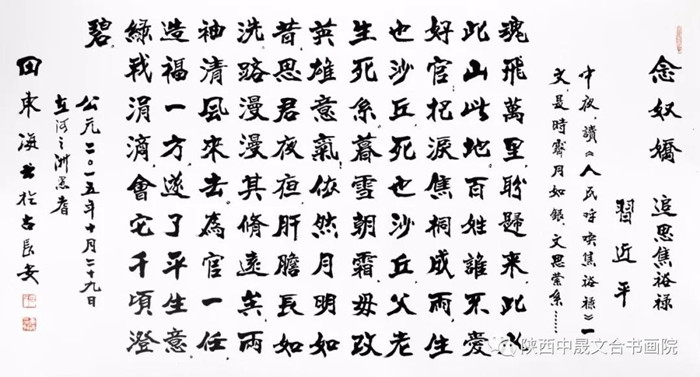 念奴嬌 追思焦裕禄
習近平
中夜，讀《人民呼唤焦裕禄》一
文，是時霽月如銀，文思縈系……
魂飛萬里盼歸來此水
此山此地百姓誰不愛
好官把淚焦桐成雨生
也沙丘死也沙丘父老
生死系暮雪朝霜毋改
英雄意氣依然月明如
昔思君夜夜肝膽長如
洗路漫漫其脩遠矣兩
袖清風來去為官一任
造福一方遂了平生意
綠我涓滴會它千頃澄
碧
公元二〇一五年十月二十九日
河之洲
田東海书於古長安
陕西中晟文台书画院